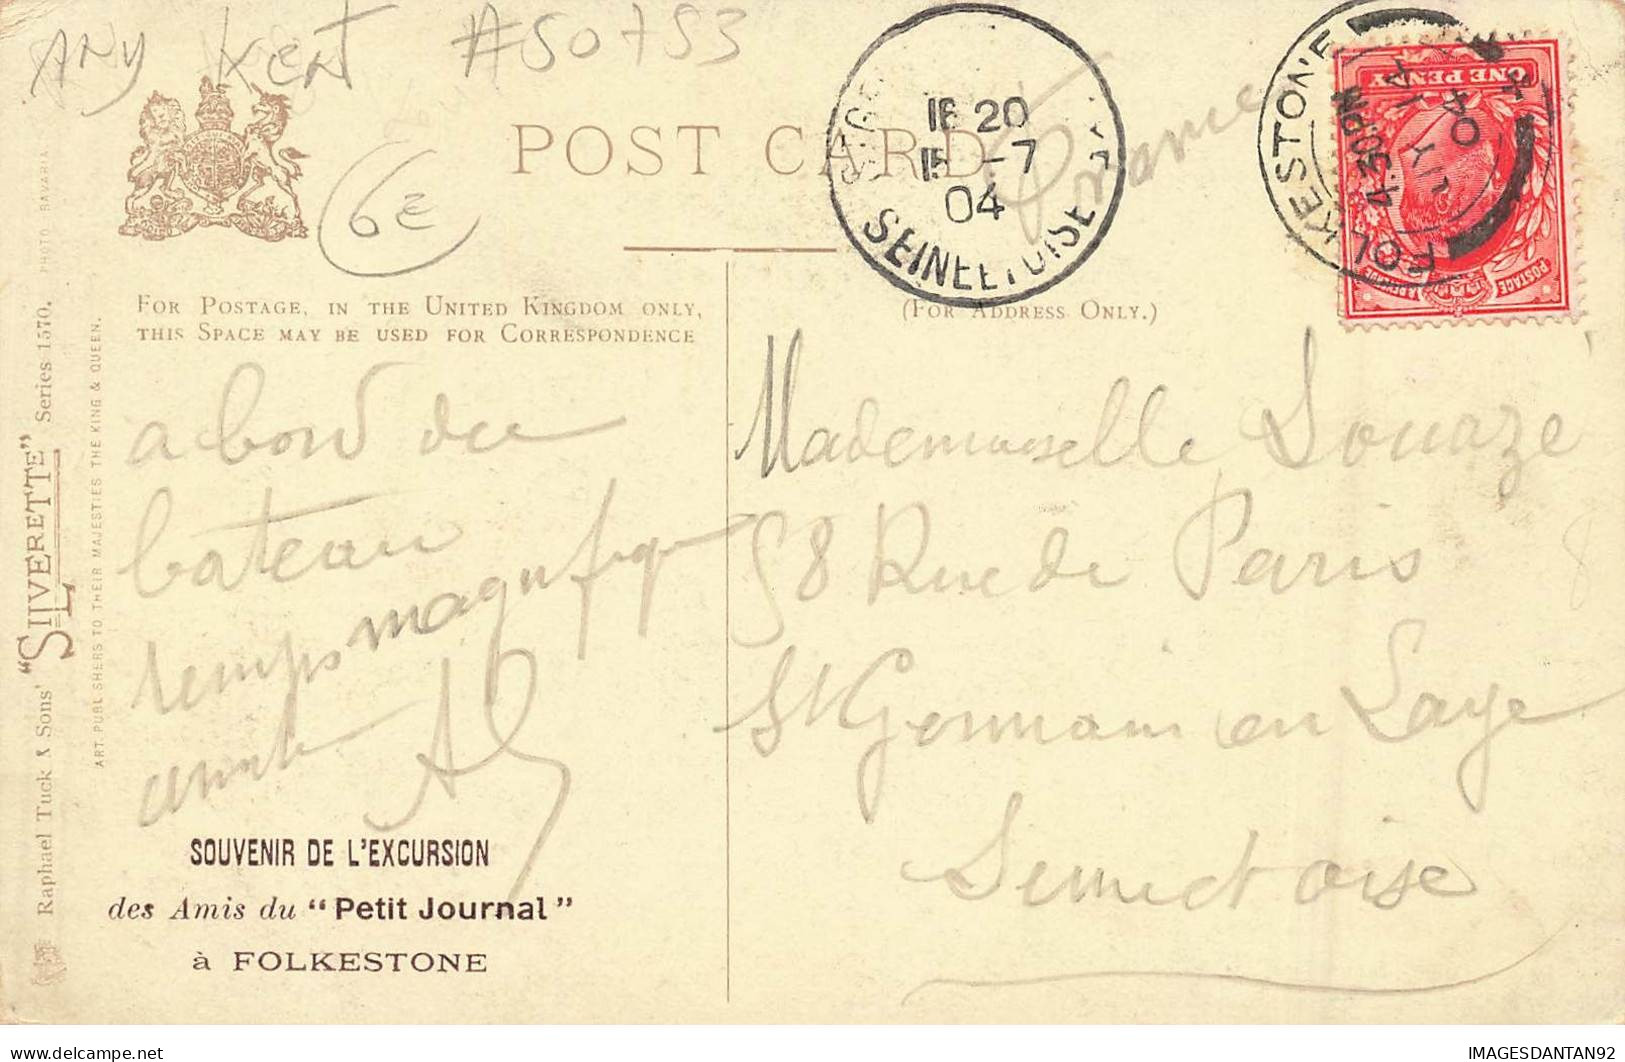 Any Kent #50753
6€
POST CARD
France
16 20
15 -7
04
SEINE ET OISE
FOLKESTONE
4.30PM
JY 14
04
ONE PENNY
POSTAGE
FOR POSTAGE, IN THE UNITED KINGDOM ONLY,
THIS SPACE MAY BE USED FOR CORRESPONDENCE
(FOR ADDRESS ONLY.)
a bord du
bateau
temps magnifique
Mademoiselle Souazé
58 Rue de Paris
St Germain en Laye
Seine et oise
SOUVENIR DE L'EXCURSION
des Amis du "Petit Journal"
à FOLKESTONE
Raphael Tuck & Sons' "SILVERETTE" Series 1570. PHOTO. BAVARIA
ART PUBLISHERS TO THEIR MAJESTIES THE KING & QUEEN.
delcampe.net
IMAGESDANTAN92